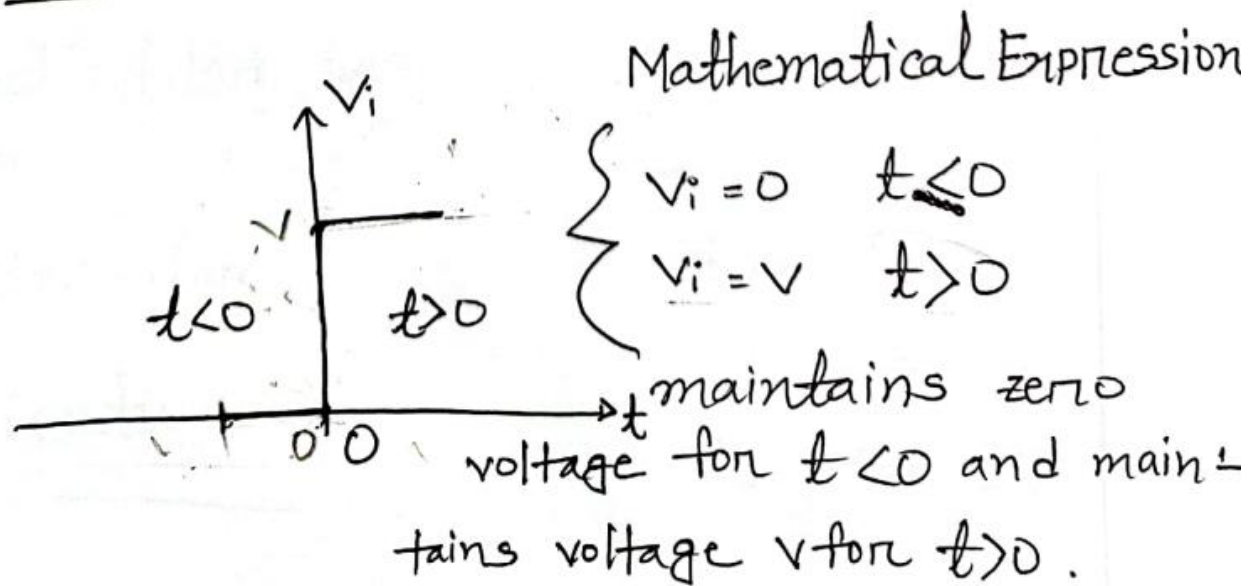 Mathematical Expression
Vi
V
t<0
t>0
0 0
t
Vi = 0 t ≤ 0
Vi = V t>0
maintains zero
voltage for t <0 and main-
tains voltage v for t>0.